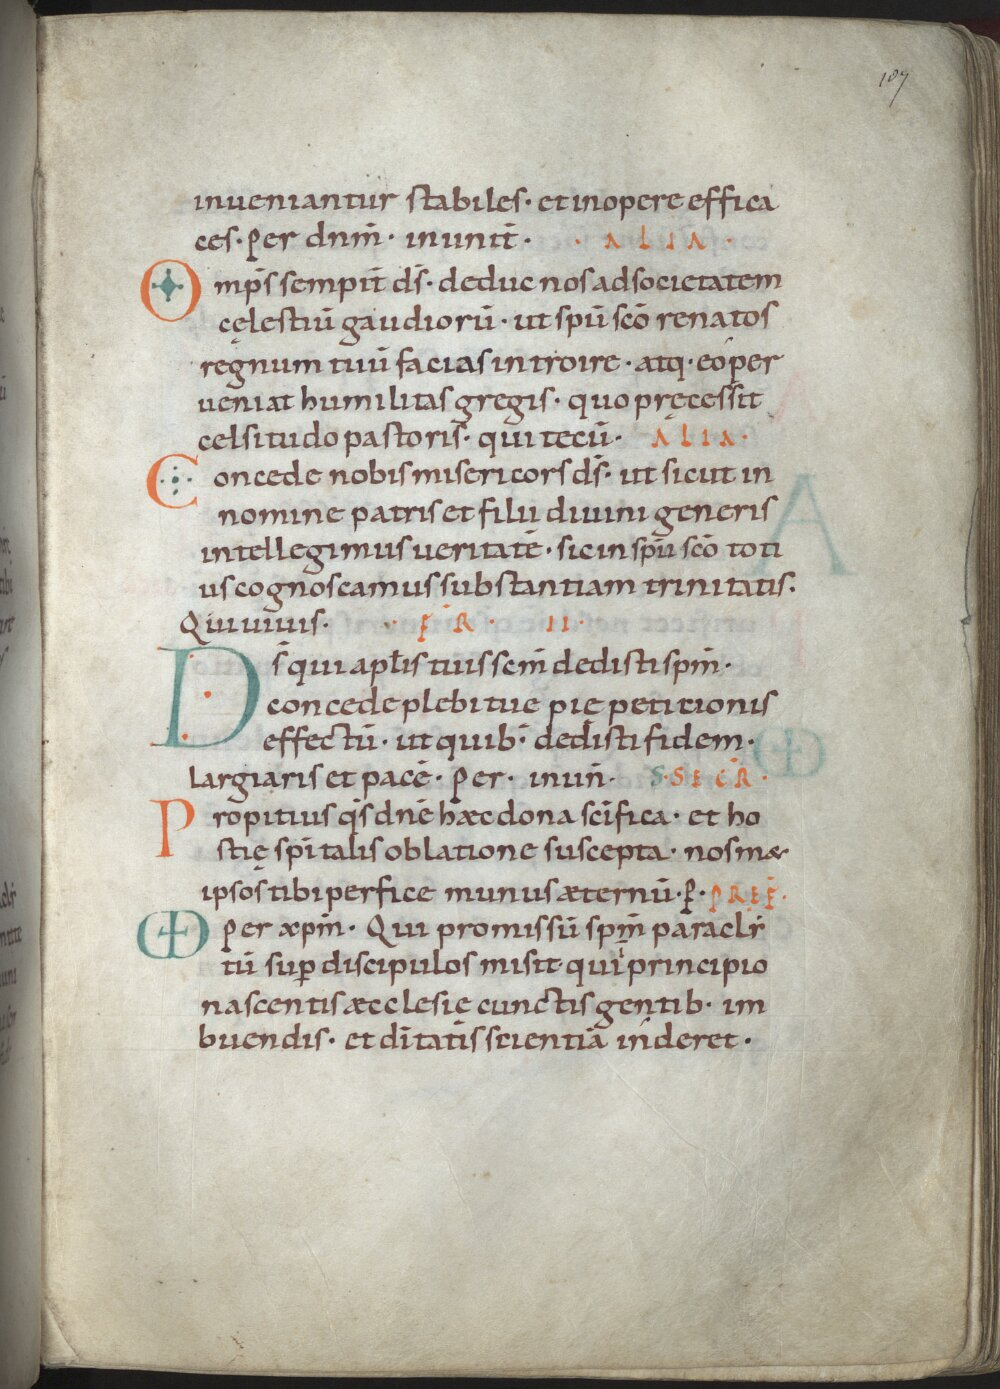 107
inueniantur stabiles· et in opere effica
ces· Per dnm̄· in unit̄· · ALIA ·
Omp̄s sempit̄ d̄s· deduc nos ad societatem
cęlestiū gaudiorū· ut sp̄u sc̄o renatos
regnum tuū facias introire· atq· eo per
ueniat humilitas gregis· quo pręcessit
celsitudo pastoris· qui tecū· ALIA·
Concede nobis misericors d̄s· ut sicut in
nomine patris et filii diuini generis
intellegimus ueritatē· sic in sp̄u sc̄o toti
us cognoscamus substantiam trinitatis·
Qui uiuis· · FR̄ · II·
D̄s qui apl̄is tuis sc̄m dedisti sp̄m·
concede plebi tuę pię petitionis
effectū· ut quib· dedisti fidem·
largiaris et pacē· Per· in un̄· S·SECR̄·
Propitius q̄s dn̄e hæc dona sc̄ifica· et ho
stię sp̄italis oblatione suscepta· nosmæ
ipsos tibi perfice munus æternū· P̄· PREF̄·
Per xp̄m· Qui promissū sp̄m paracli
tū sup̄ discipulos misit qui principio
nascentis æcclesię cunctis gentib· im
buendis· et dītatis scientiā inderet·
A